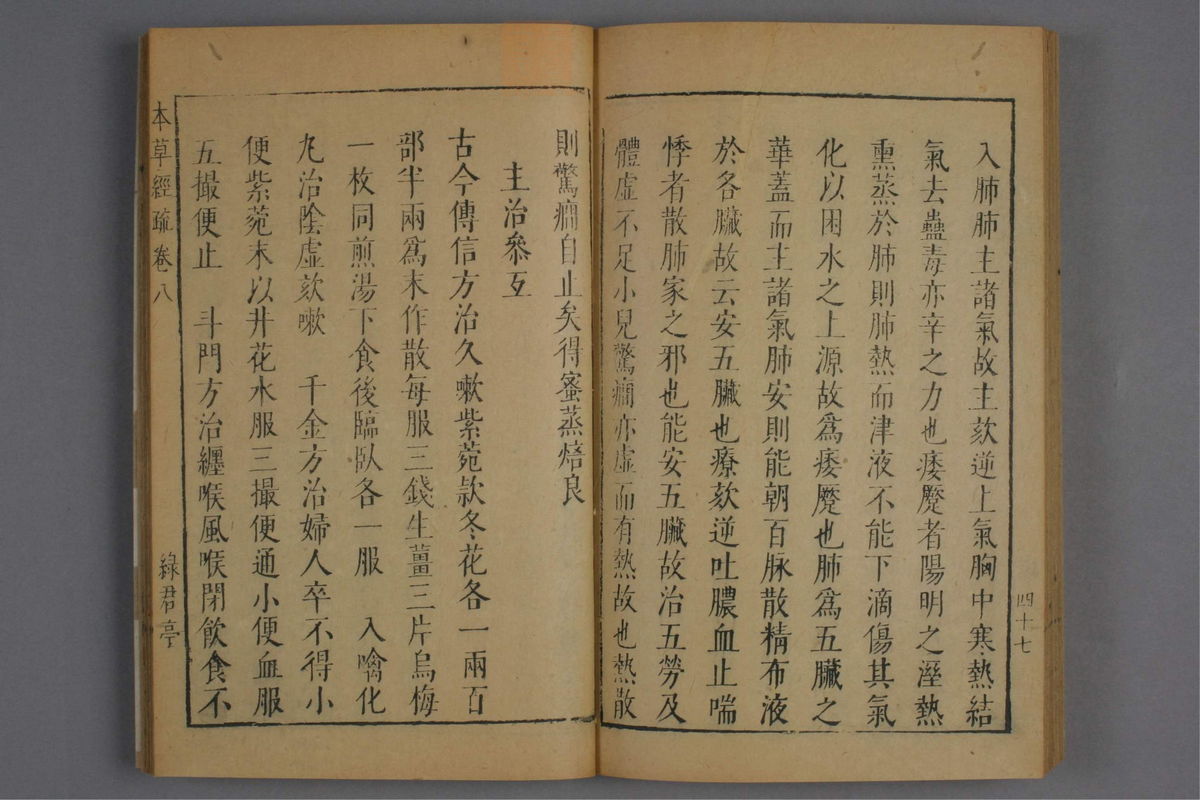 四十七
入肺肺主諸氣故主欬逆上氣胸中寒熱結
氣去蠱毒亦辛之力也痿躄者陽明之溼熱
熏蒸於肺則肺熱而津液不能下滴傷其氣
化以困水之上源故爲痿躄也肺爲五臟之
華蓋而主諸氣肺安則能朝百脉散精布液
於各臟故云安五臟也療欬逆吐膿血止喘
悸者散肺家之邪也能安五臟故治五勞及
體虛不足小兒驚癇亦虛而有熱故也熱散
則驚癇自止矣得蜜蒸焙良
主治叅互
古今傳信方治久嗽紫菀款冬花各一兩百
部半兩爲末作散每服三錢生薑三片烏梅
一枚同煎湯下食後臨臥各一服 入噙化
丸治陰虛欬嗽 千金方治婦人卒不得小
便紫菀末以井花水服三撮便通小便血服
五撮便止 斗門方治纏喉風喉閉飮食不
本草經疏卷八
綠君亭